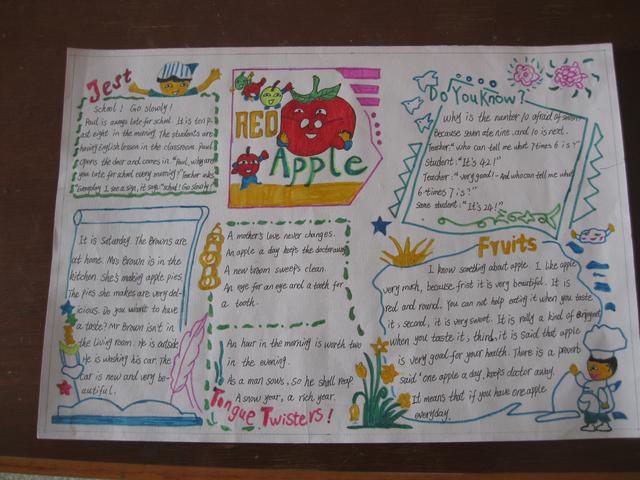 Jest
School! Go slowly!
Paul is always late for school. It is ten p
ast eight in the morning. The students are
having English lesson in the classroom. Paul
opens the door and comes in. "Paul, why are
you late for school every morning?" Teacher asks
"Everyday I see a sign, it says: "school! Go slowly!"
It is Saturday. The Browns are
at home. Mrs Brown is in the
kitchen She's making apple pies.
The pies she makes are very del-
icious. Do you want to have
a taste? Mr Brown isn't in
the living room. He is outside.
He is washing his car. The
car is new and very be-
autiful.
RED
Apple
A mother's love never changes.
An apple a day keeps the doctor away
A new broom sweeps clean.
An eye for an eye and a tooth for
a tooth.
An hour in the morning is worth two
in the evening.
As a man sows, so he shall reap.
A snow year, a rich year.
Tongue Twisters!
Do You Know?
Why is the number 10 afraid of seven
Because seven ate nine, and 10 is next.
Teacher: "Who can tell me what 7 times 6 is?"
Student: "It's 42!"
Teacher: "Very good! - And who can tell me what
6 times 7 is?"
Same student: "It's 24!"
Fruits
I know something about apple. I like apple
very much, because frist it is very beautiful. It is
red and round. You can not help eating it when you taste
it, second, it is very sweet. It is really a kind of
when you taste it, third, it is said that apple
is very good for your health. There is a proverb
said "one apple a day, keeps doctor away.
It means that if you have one apple
everyday.